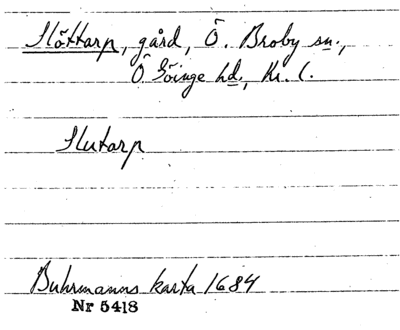 Slättarp, gård, Ö. Broby sn.,
Ö Göinge hd., Kr. l.
Slutarp
Buhrmanns karta 1684
Nr 5418